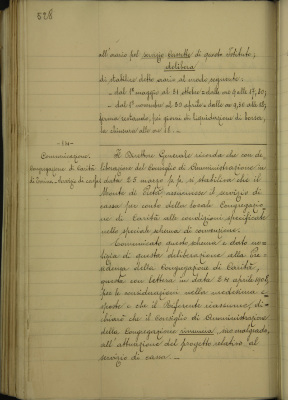 528
all'orario pel servizio Cassette di questo Istituto;
delibera
di stabilire detto orario al modo seguente:
- dal 1° maggio al 31 ottobre dalle ore 9 alle 17,30;
- dal 1° novembre al 30 aprile dalle ore 9,30 alle 18;
ferma restando, pei giorni di liquidazione di borsa,
la chiusura alle ore 18. —
Comunicazione.
Congregazione di Carità
di Torino - Servizio di cassa
Il Direttore Generale ricorda che con de-
liberazione del Consiglio di Amministrazione in
data 25 marzo p.p. si stabiliva che il
Monte di Pietà assumesse il servizio di
cassa per conto della locale Congregazio-
ne di Carità alle condizioni specificate
nello speciale schema di convenzione.
Comunicato questo schema e dato no-
tizia di questa deliberazione alla Pre-
sidenza della Congregazione di Carità,
questa con lettera in data aprile
per le considerazioni nella medesima e-
sposte e che il Riferente riassume, di-
chiarò che il Consiglio di Amministrazione
della Congregazione rinunciò, suo malgrado,
all'attuazione del progetto relativo al
servizio di cassa. —